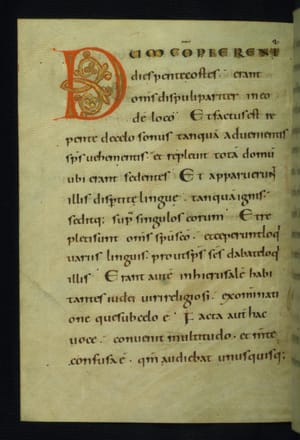 DUM COMPLERENT
dies pentecostes. erant
oms discipuli pariter in eo
dē loco. Et factus est re
pente de celo sonus tanquā advenientis
sps vehementis et replevit totā domū
ubi erant sedentes. Et apparuerunt
illis dispertite lingue. tanquā ignis.
seditq; supra singulos eorum. Et re
pleti sunt oms spu sco. et ceperunt loq
variis linguis prout sps scs dabat eloq
illis. Erant autē in hierusalē habi
tantes iudei viri religiosi. ex omni nati
one que sub celo ē. Facta aut hac
voce. convenit multitudo. et mte
confusa ē. qm audiebat unusquisq;